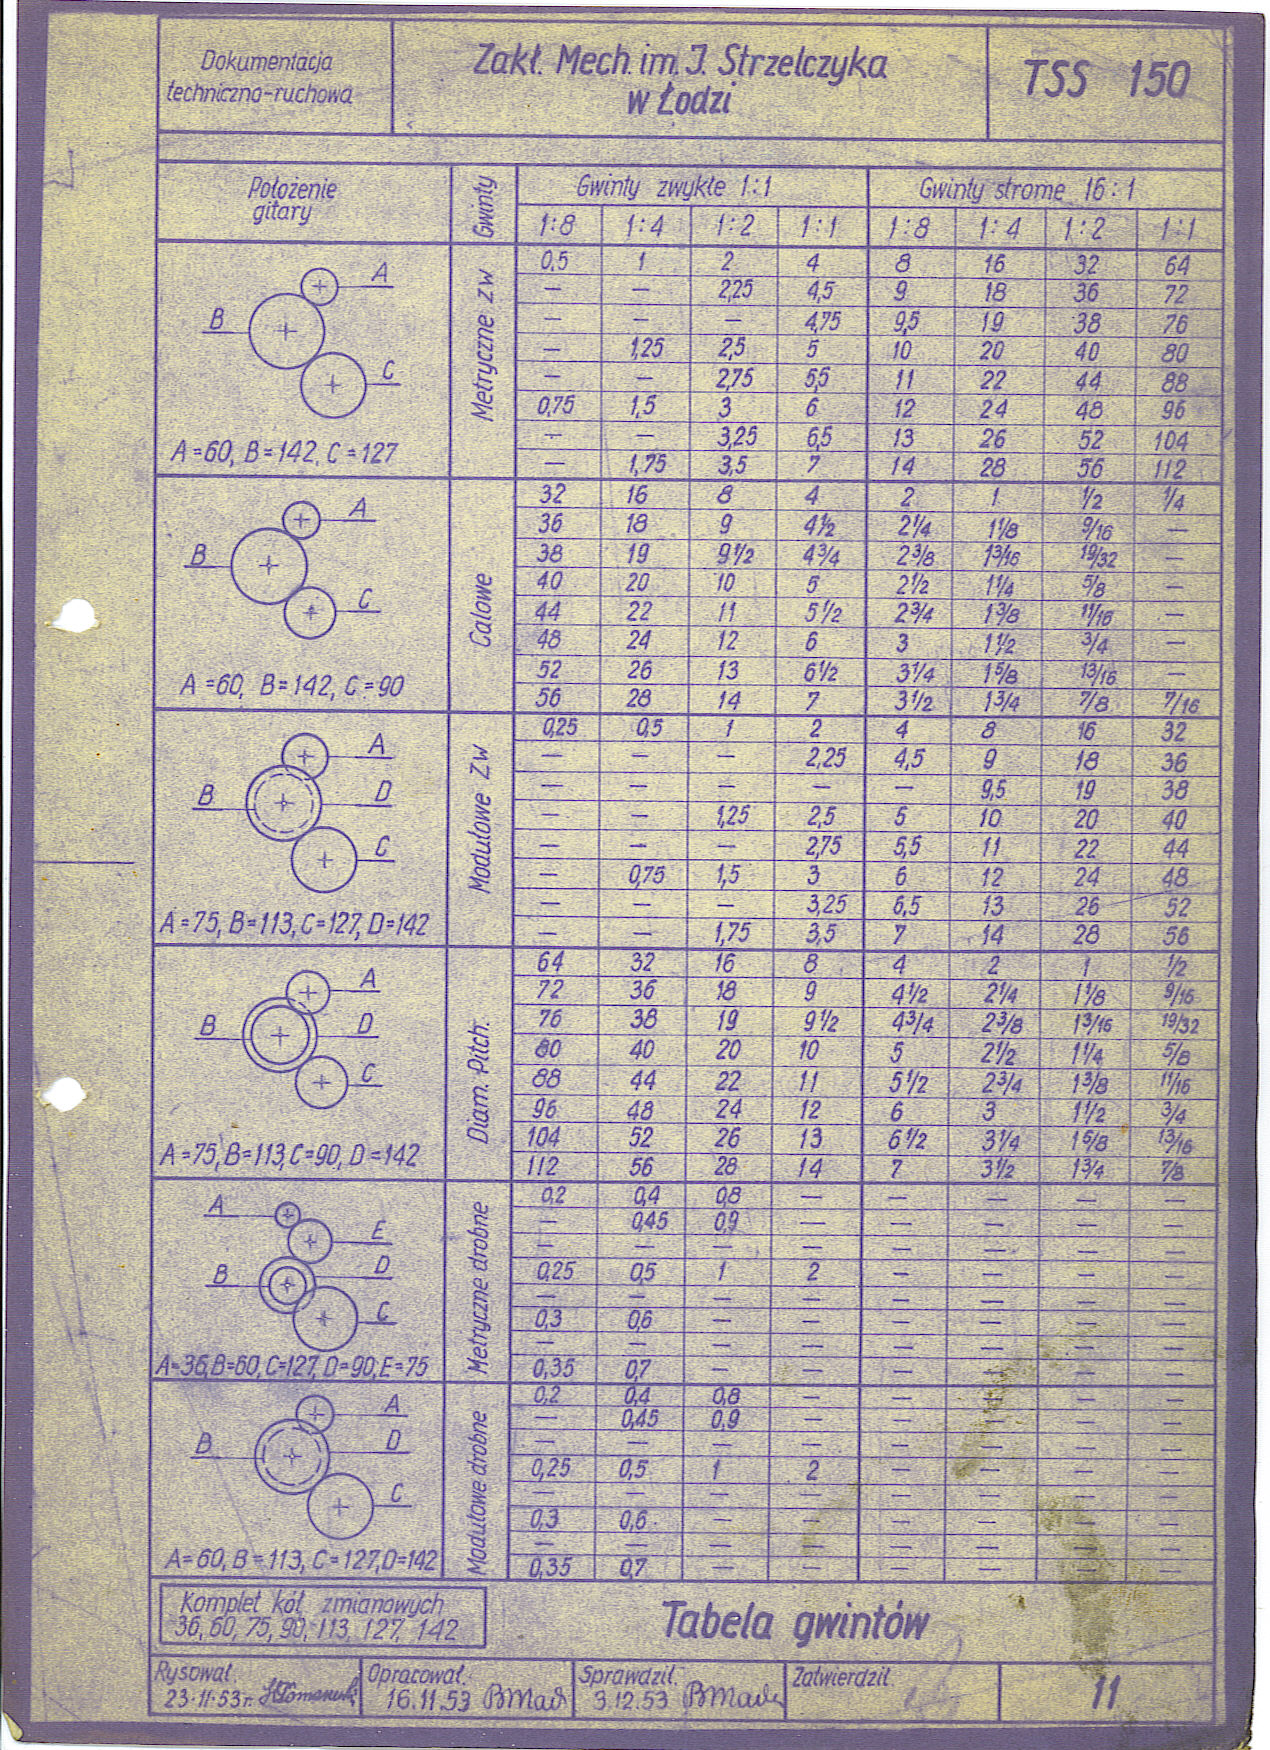 Dokumentacja
techniczno-ruchowa
Zakł. Mech. im. J. Strzelczyka
w Łodzi
TSS 150
Położenie
gitary
Gwinty
Gwinty zwykłe 1:1
Gwinty strome 16:1
1:8 1:4 1:2 1:1 1:8 1:4 1:2 1:1
A
B
C
A=60, B=142, C=127
Metryczne zw
0,5 1 2 4 8 16 32 64
— — 2,25 4,5 9 18 36 72
— — — 4,75 9,5 19 38 76
— 1,25 2,5 5 10 20 40 80
— — 2,75 5,5 11 22 44 88
0,75 1,5 3 6 12 24 48 96
— — 3,25 6,5 13 26 52 104
— 1,75 3,5 7 14 28 56 112
A
B
C
A=60, B=142, C=90
Calowe
32 16 8 4 2 1 1/2 1/4
36 18 9 4 1/2 2 1/4 1 1/8 9/16 —
38 19 9 1/2 4 3/4 2 3/8 1 3/16 19/32 —
40 20 10 5 2 1/2 1 1/4 5/8 —
44 22 11 5 1/2 2 3/4 1 3/8 11/16 —
48 24 12 6 3 1 1/2 3/4 —
52 26 13 6 1/2 3 1/4 1 5/8 13/16 —
56 28 14 7 3 1/2 1 3/4 7/8 7/16
A
B
D
C
A=75, B=113, C=127, D=142
Modułowe Zw
0,25 0,5 1 2 4 8 16 32
— — — 2,25 4,5 9 18 36
— — — — — 9,5 19 38
— — 1,25 2,5 5 10 20 40
— — — 2,75 5,5 11 22 44
— 0,75 1,5 3 6 12 24 48
— — — 3,25 6,5 13 26 52
— — 1,75 3,5 7 14 28 56
A
B
D
C
A=75, B=113, C=90, D=142
Diam. Pitch.
64 32 16 8 4 2 1 1/2
72 36 18 9 4 1/2 2 1/4 1 1/8 9/16
76 38 19 9 1/2 4 3/4 2 3/8 1 3/16 19/32
80 40 20 10 5 2 1/2 1 1/4 5/8
88 44 22 11 5 1/2 2 3/4 1 3/8 11/16
96 48 24 12 6 3 1 1/2 3/4
104 52 26 13 6 1/2 3 1/4 1 5/8 13/16
112 56 28 14 7 3 1/2 1 3/4 7/8
A
E
D
B
C
A=36, B=60, C=127, D=90, E=75
Metryczne drobne
0,2 0,4 0,8 — — — — —
— 0,45 0,9 — — — — —
— — — — — — — —
0,25 0,5 1 2 — — — —
— — — — — — — —
0,3 0,6 — — — — — —
— — — — — — — —
0,35 0,7 — — — — — —
A
B
D
C
A=60, B=113, C=127, D=142
Modułowe drobne
0,2 0,4 0,8 — — — — —
— 0,45 0,9 — — — — —
— — — — — — — —
0,25 0,5 1 2 — — — —
— — — — — — — —
0,3 0,6 — — — — — —
— — — — — — — —
0,35 0,7 — — — — — —
Komplet kół zmianowych
36, 60, 75, 90, 113, 127, 142
Tabela gwintów
Rysował
23.11.53 r.
Opracował.
16.11.53
Sprawdził.
3.12.53
Zatwierdził.
11